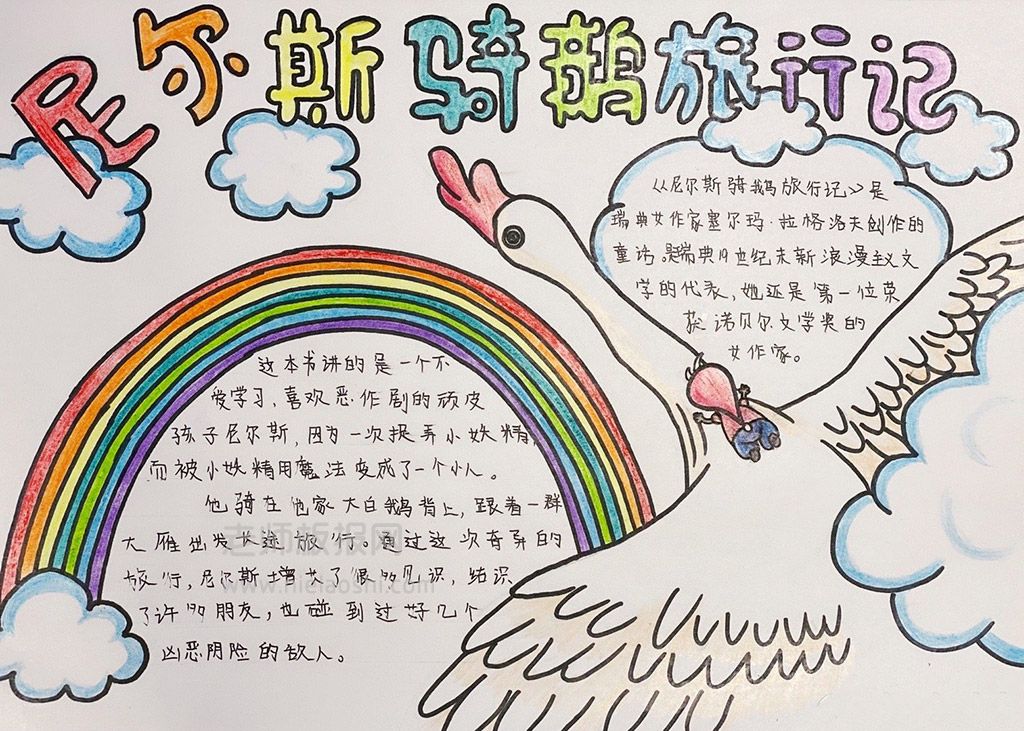 尼尔斯骑鹅旅行记
《尼尔斯骑鹅旅行记》是
瑞典女作家塞尔玛·拉格洛夫创作的
童话。是瑞典19世纪末新浪漫主义文
学的代表,她还是第一位荣
获诺贝尔文学奖的
女作家。
这本书讲的是一个不
爱学习,喜欢恶作剧的顽皮
孩子尼尔斯,因为一次捉弄小妖精,
而被小妖精用魔法变成了一个小人。
他骑在他家大白鹅背上,跟着一群
大雁出发长途旅行。通过这次奇异的
旅行,尼尔斯增长了很多见识,结识
了许多朋友,也碰到过好几个
凶恶阴险的敌人。
老师板报网